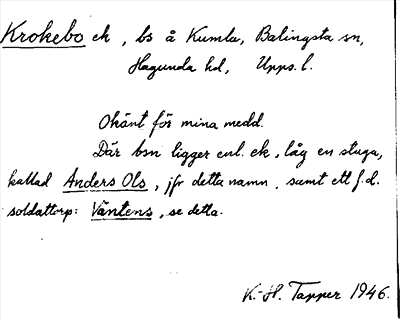 Krokebo ek, bs å Kumla, Balingsta sn,
Hagunda hd, Upps. l.
Okänt för mina medd.
Där bsn ligger enl. ek, låg en stuga,
kallad Anders Ols, jfr detta namn, samt ett f.d.
soldattorp: Väntens, se detta.
K.-H. Tapper 1946.